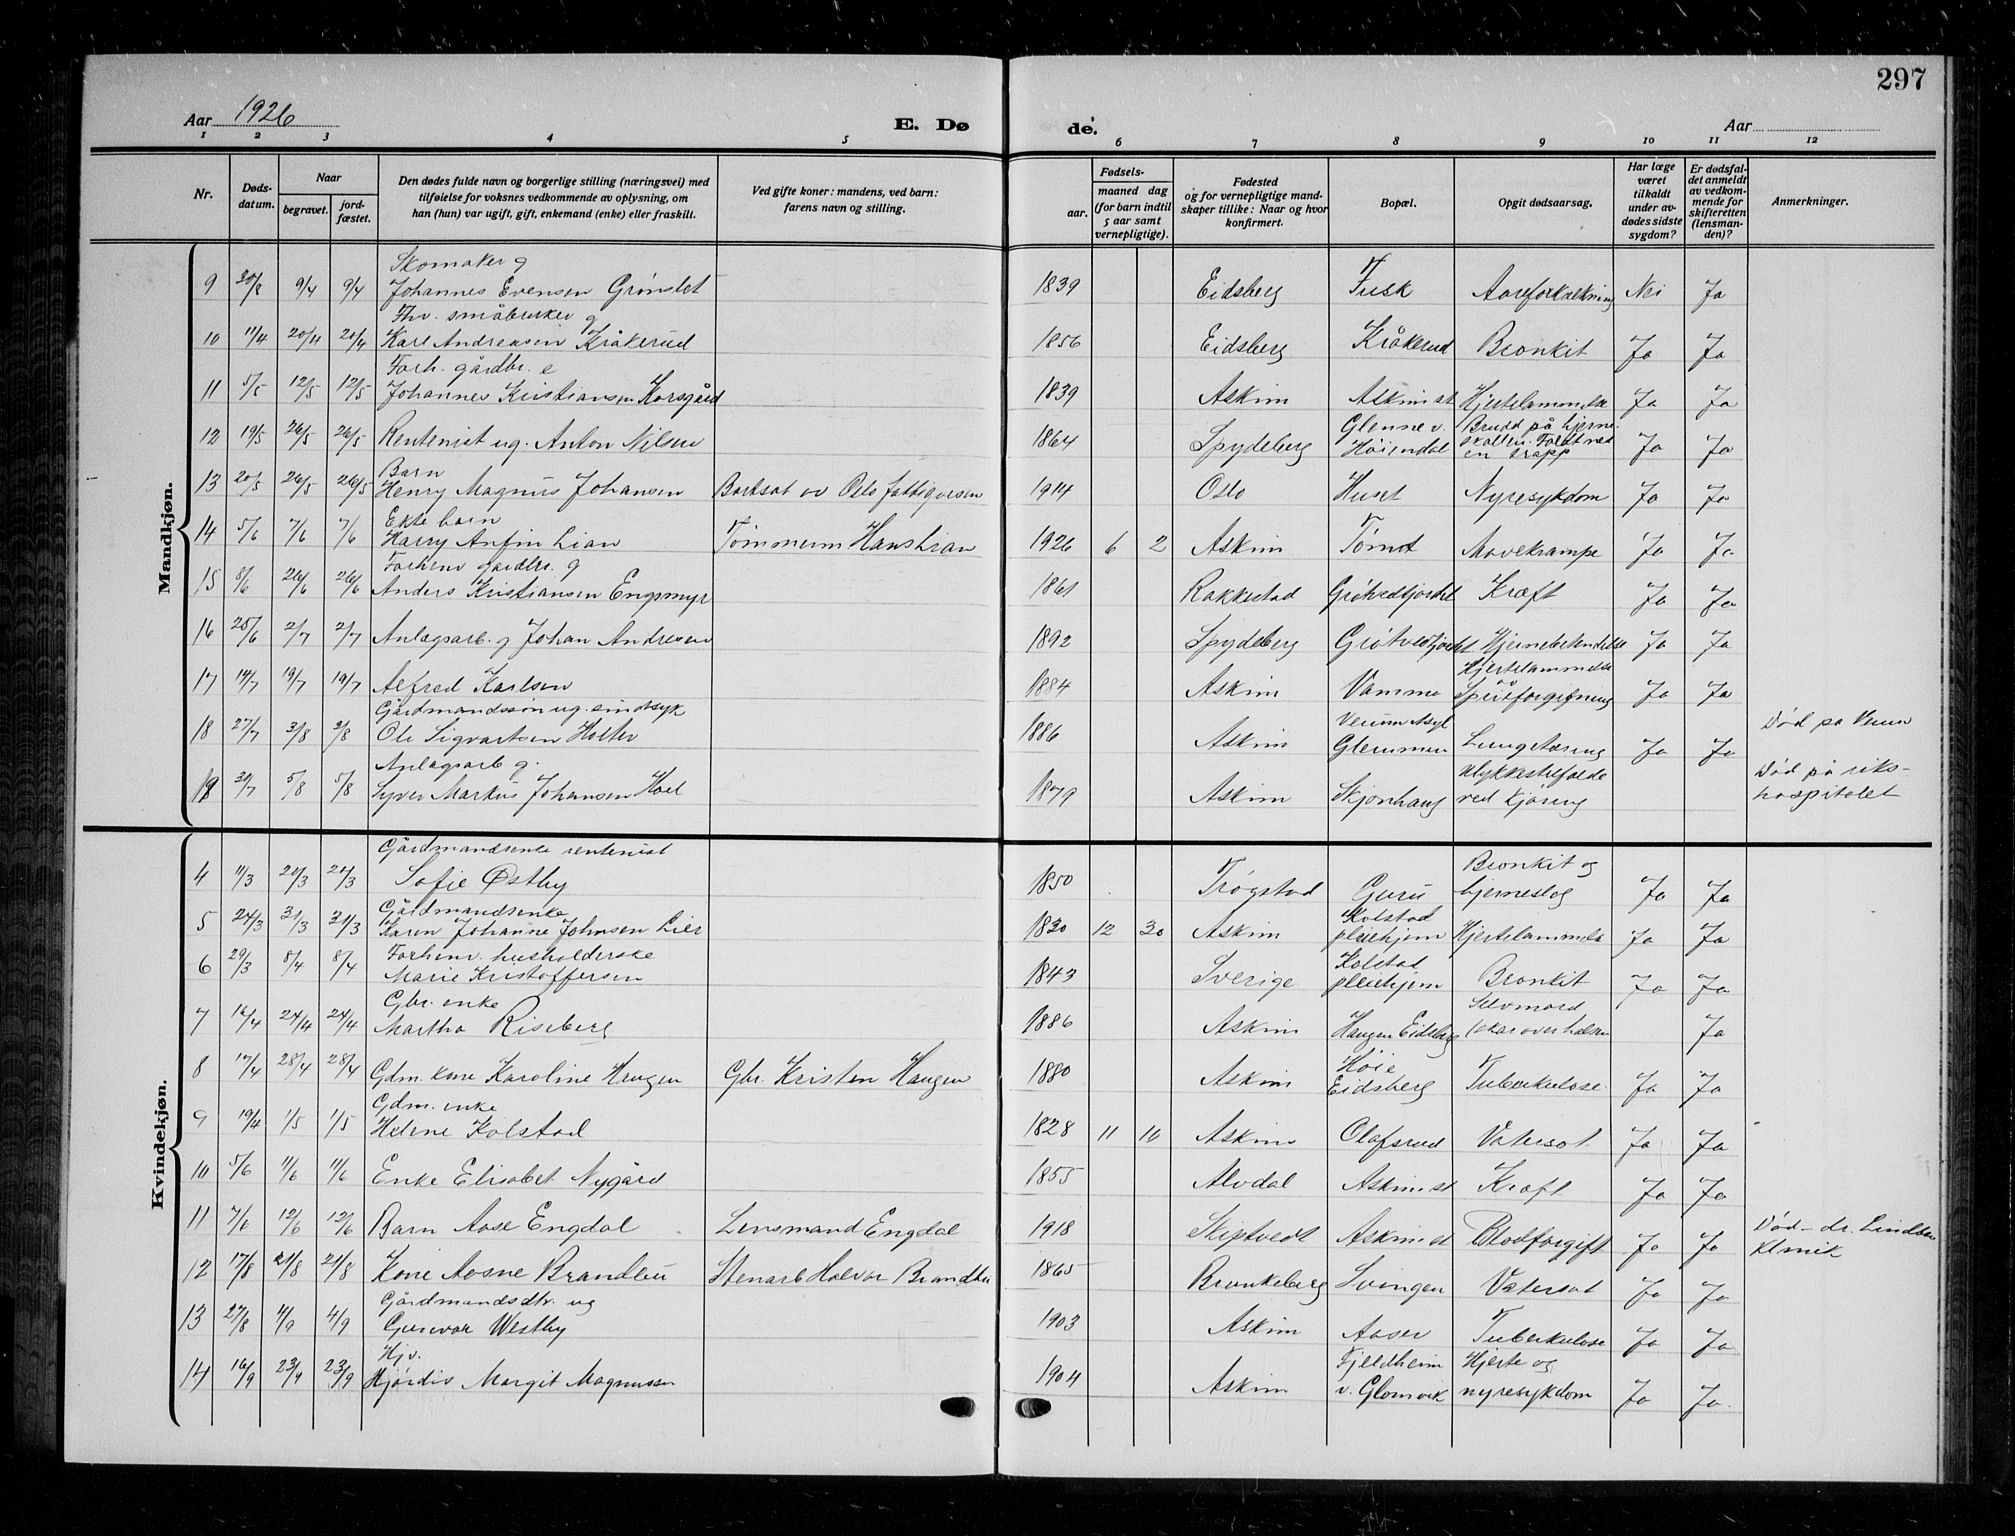 297
Aar 1926
E. Dø
de.
Aar
1 2 3 4 5 6 7 8 9 10 11 12
Nr.
Døds-
datum.
Naar
begravet.
jord-
fæstet.
Den dødes fulde navn og borgerlige stilling (næringsvei) med
tilføielse for voksnes vedkommende av oplysning, om
han (hun) var ugift, gift, enkemand (enke) eller fraskilt.
Ved gifte koner: mandens, ved barn:
farens navn og stilling.
Fødsels-
aar.
maaned dag
(for barn indtil
5 aar samt
vernepligtige).
Fødested
og for vernepligtige mand-
skaper tillike: Naar og hvor
konfirmert.
Bopæl.
Opgit dødsaarsag.
Har læge
været
tilkaldt
under av-
dødes sidste
sygdom?
Er dødsfal-
det anmeldt
av vedkom-
mende for
skifteretten
(lensman-
den)?
Anmerkninger.
Mandkjøn.
Skomaker g
9 30/3 9/4 9/4 Johannes Evensen Grønslet 1839 Eidsberg Tusk Aareforkalkning Nei Ja
Fhv. småbruker g
10 11/4 20/4 20/4 Karl Andreasen Kråkerud 1856 Eidsberg Kråkerud Bronkit Ja Ja
Forh. gårdbr. e
11 5/5 12/5 12/5 Johannes Kristiansen Korsgård 1839 Askim Askim st Hjertelammelse Ja Ja
12 19/5 26/5 26/5 Rentenist ug. Anton Nilsen 1864 Spydeberg Glenne v. Høiendal Brudd på hjerne-
skallen. Faldt ned
en trapp Ja Ja
Barn
13 20/5 26/5 26/5 Henry Magnus Johansen Bortsat av Oslo fattigvesen 1914 Oslo Huset Nyresykdom Ja Ja
Ekte barn
14 5/6 7/6 7/6 Harry Anfin Lian Tømmerm Hans Lian 1926 6 2 Askim Tømt Mavekrampe Ja Ja
Forhenv gårdbr. g
15 8/6 26/6 26/6 Anders Kristiansen Engsmyr 1861 Rakkestad Grøtvedfjordet Kræft Ja Ja
16 25/6 2/7 2/7 Anlægsarb. g Johan Andresen 1892 Spydeberg Grøtvedfjordet Hjernebetændelse Ja Ja
17 14/7 19/7 19/7 Alfred Karlsen 1884 Askim Vamma Hjertelammelse
av
Spritforgiftning Ja Ja
Gårdmandssøn ug. sindssyk
18 27/7 3/8 3/8 Ole Sigvartsen Holter 1886 Askim Veum Asyl
Glemmen Lungetæring Ja Ja Død på Veum
Anlægsarb g.
19 30/7 5/8 5/8 Syver Markus Johansen Hoel 1879 Askim Skjønhaug Ulykkestilfælde
ved kjøring Død på riks-
hospitalet
Kvindekjøn.
Gårdmandsenke rentenist
4 11/3 20/3 20/3 Sofie Østby 1850 Trøgstad Guru Bronkit og
hjerneslag Ja Ja
Gårdmandsenke
5 24/3 31/3 31/3 Karen Johanne Johnsen Lier 1830 12 30 Askim Kolstad
pleiehjem Hjertelammelse Ja Ja
Forhenv. husholderske
6 29/3 8/4 8/4 Marie Kristoffersen 1843 Sverige Kolstad
pleiehjem Bronkit Ja Ja
Gbr. enke
7 16/4 24/4 24/4 Martha Riseberg 1886 Askim Haugen Eidsberg Selvmord
(skar over halsen Ja
8 17/4 28/4 28/4 Gdm. kone Karoline Haugen Gbr. Kristen Haugen 1880 Askim Høie
Eidsberg Tuberkulose Ja Ja
Gdm. enke
9 19/4 1/5 1/5 Helene Kolstad 1828 11 10 Askim Olafsrud Vatersot Ja Ja
10 5/6 11/6 11/6 Enke Elisabet Nygård 1855 Alvdal Askim st Kræft Ja Ja
11 7/6 12/6 12/6 Barn Aase Engdal Lensmand Engdal 1918 Skiptvedt Askim st Blodforgift Ja Ja Død - dr. Lindbæ
klinik
12 17/8 21/8 21/8 Kone Aasne Brandbu Stenarb Halvor Brandbu 1865 Brunkeberg Svingen Vatersot Ja Ja
Gårdmandsdtr. ug
13 27/8 4/9 4/9 Gunvor Westby 1903 Askim Aaser Tuberkulose Ja Ja
Hjv.
14 16/9 23/9 23/9 Hjørdis Margit Magnussen 1904 Askim Fjeldheim
v. Glomvik Hjerte og
nyresykdom Ja Ja.